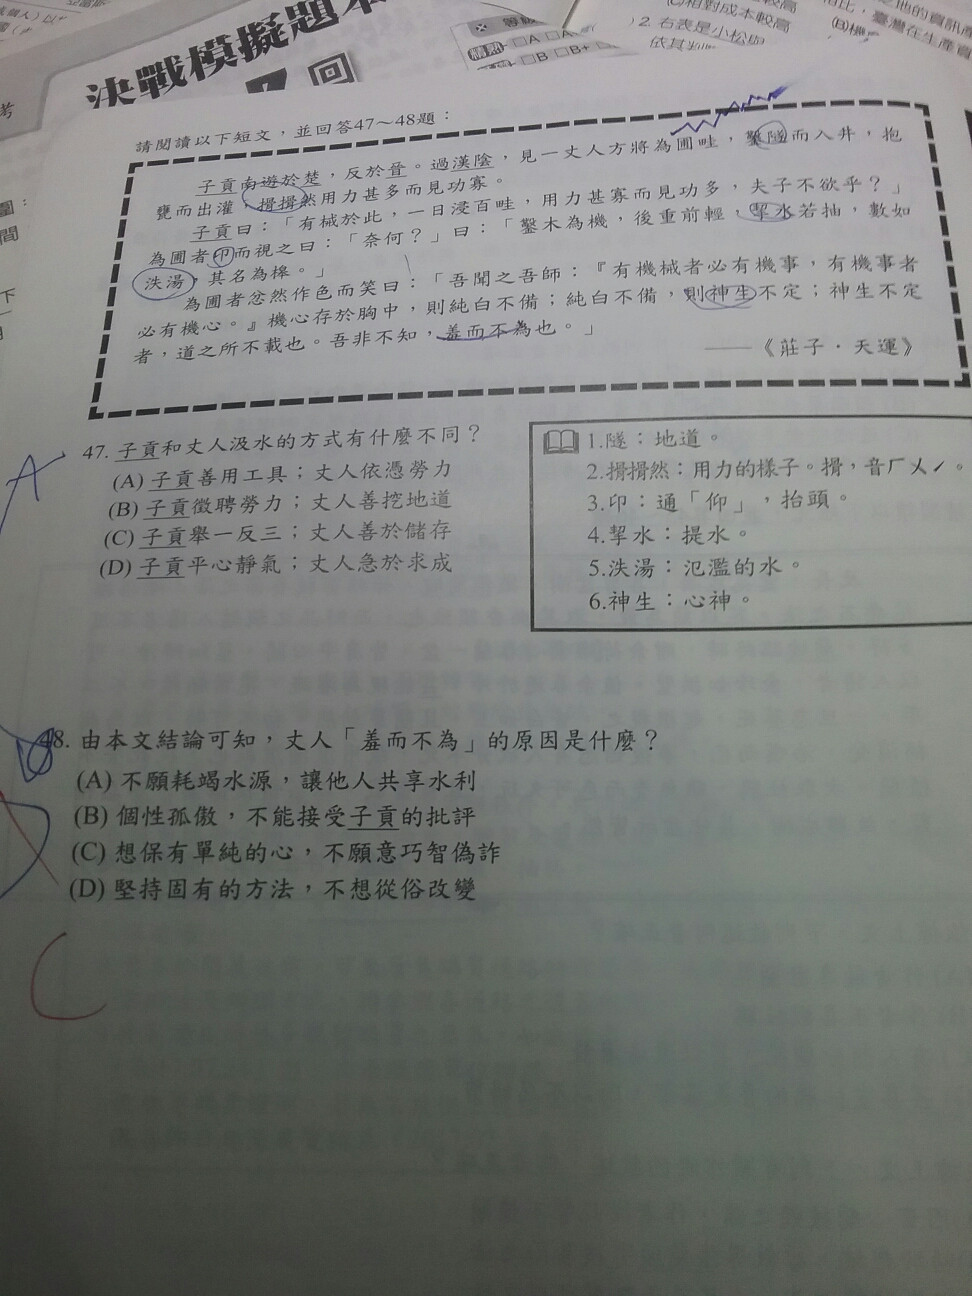 決戰模擬題本
回
請閱讀以下短文，並回答47～48題：
子貢南遊於楚，反於晉。過漢陰，見一丈人方將為圃畦，鑿隧而入井，抱
甕而出灌，搰搰然用力甚多而見功寡。
子貢曰：「有械於此，一日浸百畦，用力甚寡而見功多，夫子不欲乎？」
為圃者卬而視之曰：「奈何？」曰：「鑿木為機，後重前輕，挈水若抽，數如
泆湯，其名為槔。」
為圃者忿然作色而笑曰：「吾聞之吾師：『有機械者必有機事，有機事者
必有機心。』機心存於胸中，則純白不備；純白不備，則神生不定；神生不定
者，道之所不載也。吾非不知，羞而不為也。」
——《莊子．天運》
47. 子貢和丈人汲水的方式有什麼不同？
(A) 子貢善用工具；丈人依憑勞力
(B) 子貢徵聘勞力；丈人善挖地道
(C) 子貢舉一反三；丈人善於儲存
(D) 子貢平心靜氣；丈人急於求成
1.隧：地道。
2.搰搰然：用力的樣子。搰，音ㄏㄨˊ。
3.卬：通「仰」，抬頭。
4.挈水：提水。
5.泆湯：氾濫的水。
6.神生：心神。
48. 由本文結論可知，丈人「羞而不為」的原因是什麼？
(A) 不願耗竭水源，讓他人共享水利
(B) 個性孤傲，不能接受子貢的批評
(C) 想保有單純的心，不願意巧智偽詐
(D) 堅持固有的方法，不想從俗改變
A
C
(C)相對成本較高
2. 右表是小松與